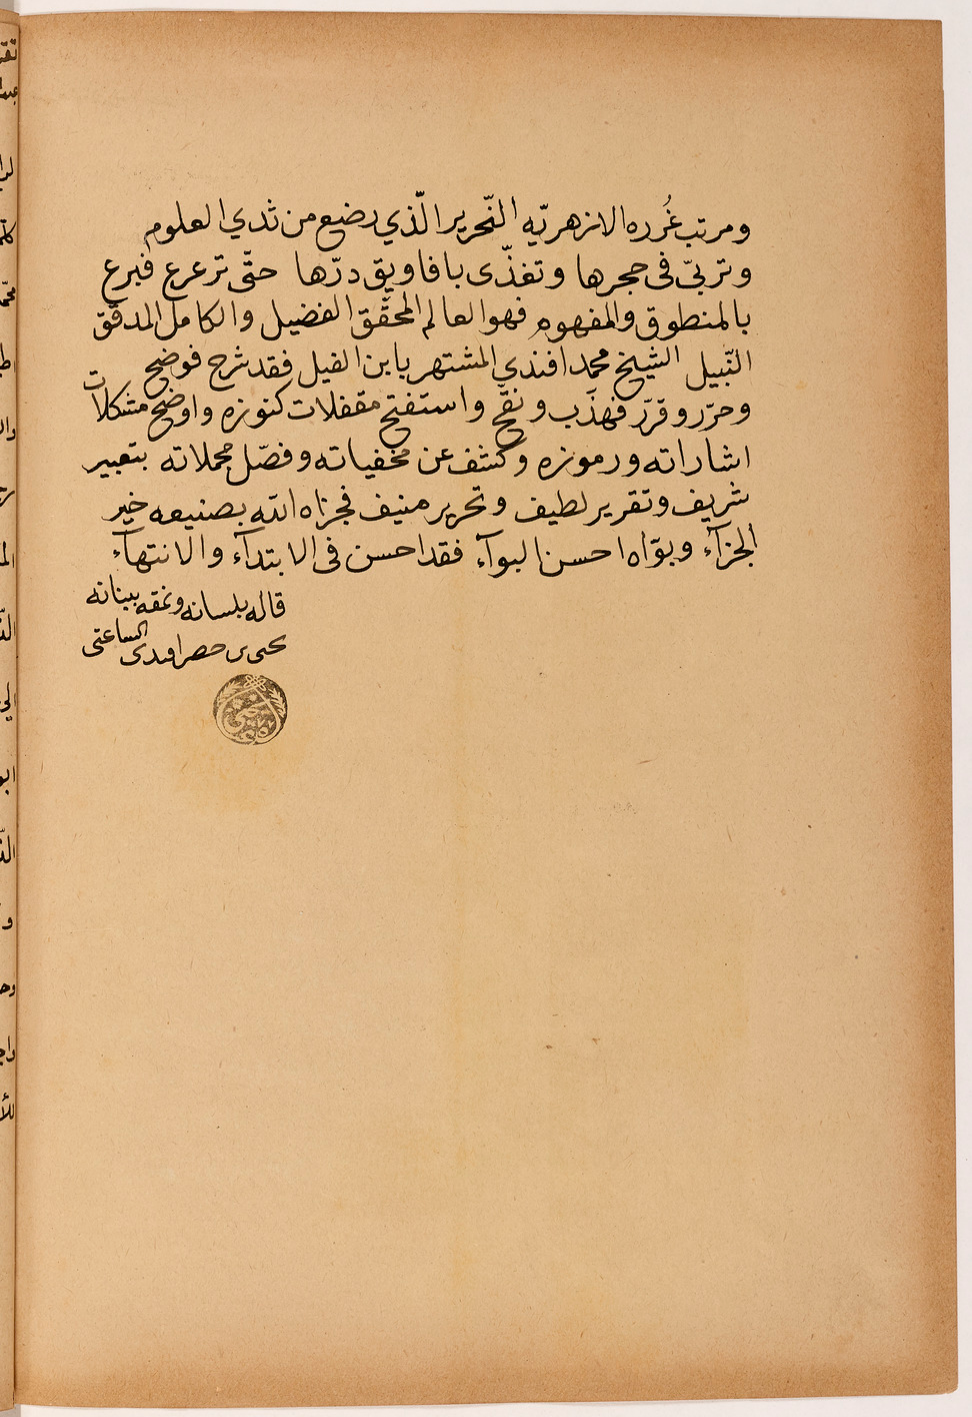 ومرتب غُرره الازهريّه النّحرير الّذي رضع من ثدي العلوم
وتربىّ فى حجرها وتغذّى بافاويق درّها حتّى ترعرع فبرع
بالمنطوق والمفهوم فهو العالم المحقّق الفضيل والكامل المدقّق
النّبيل الشيخ محمد افندي المشتهر باين الفيل فقد شرح فوضح
وحرّر وقرّر فهذّب ونقّح واستفتح مقفلات كنوزه واوضح مشكلات
اشاراته ورموزه وكشف عن مخفياته وفصّل مجملاته بتعبير
شريف وتقرير لطيف وتحرير منيف فجزاه الله بصنيعه خير
الجزآء وبوّاه احسن البوآء فقد احسن فى الابتدآء والانتهآء
قاله بلسانه ونمقه ببنانه
افندى الساعتى